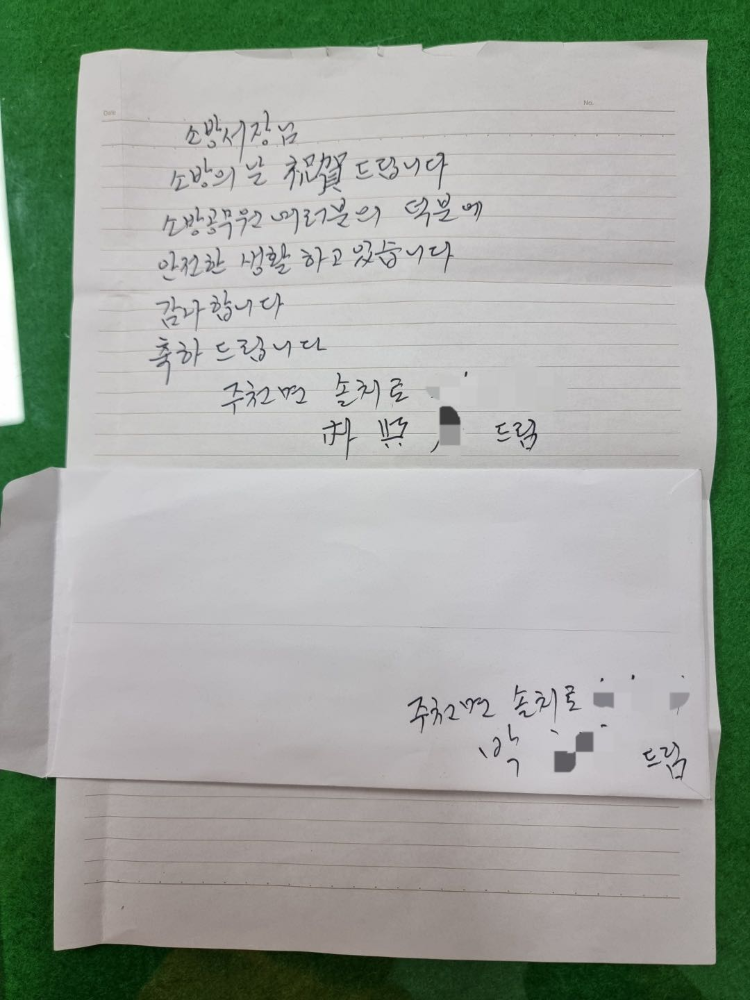 Date No.
소방서장님
소방의 날 祝賀 드립니다
소방공무원 여러분의 덕분에
안전한 생활 하고 있습니다
감사합니다
축하 드립니다
주천면 솔치로
드림
주천면 솔치로
박
드림